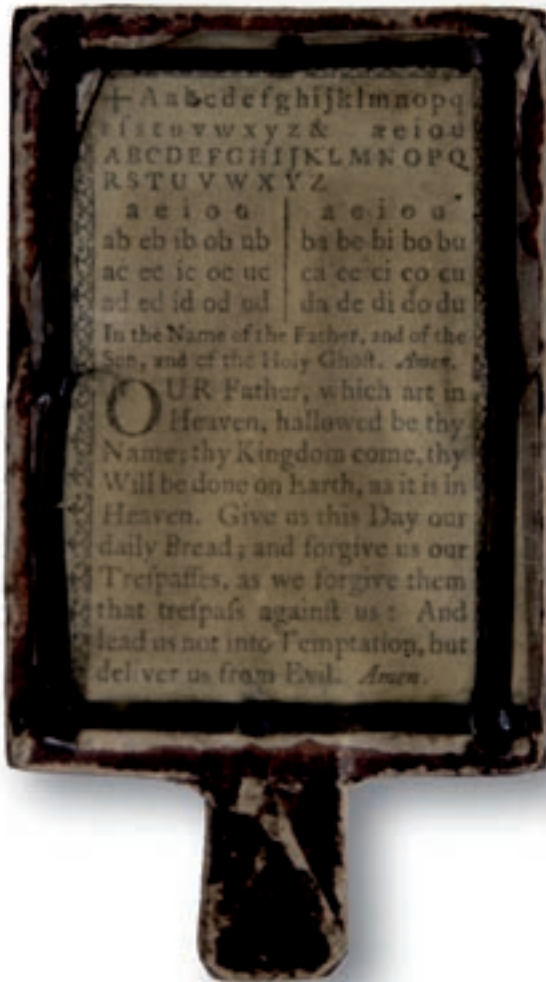 + A a b c d e f g h i j k l m n o p q
r ſ s t u v w x y z & a e i o u
A B C D E F G H I J K L M N O P Q
R S T U V W X Y Z
a e i o u | a e i o u
ab eb ib ob ub | ba be bi bo bu
ac ec ic oc uc | ca ce ci co cu
ad ed id od ud | da de di do du
In the Name of the Father, and of the
Son, and of the Holy Ghoſt. Amen.
OUR Father, which art in
Heaven, hallowed be thy
Name; thy Kingdom come, thy
Will be done on Earth, as it is in
Heaven. Give us this Day our
daily Bread; and forgive us our
Treſpaſſes, as we forgive them
that treſpaſs againſt us: And
lead us not into Temptation, but
deliver us from Evil. Amen.